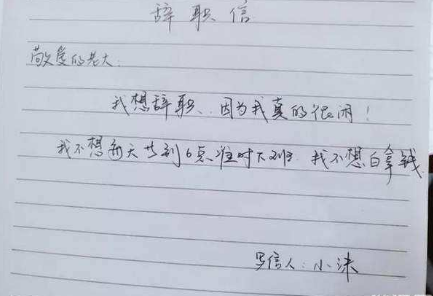 辞职信
敬爱的老大
我想辞职、因为我真的很闲！
我不想每天为到6点准时下班 我不想白拿钱
写信人：小沫